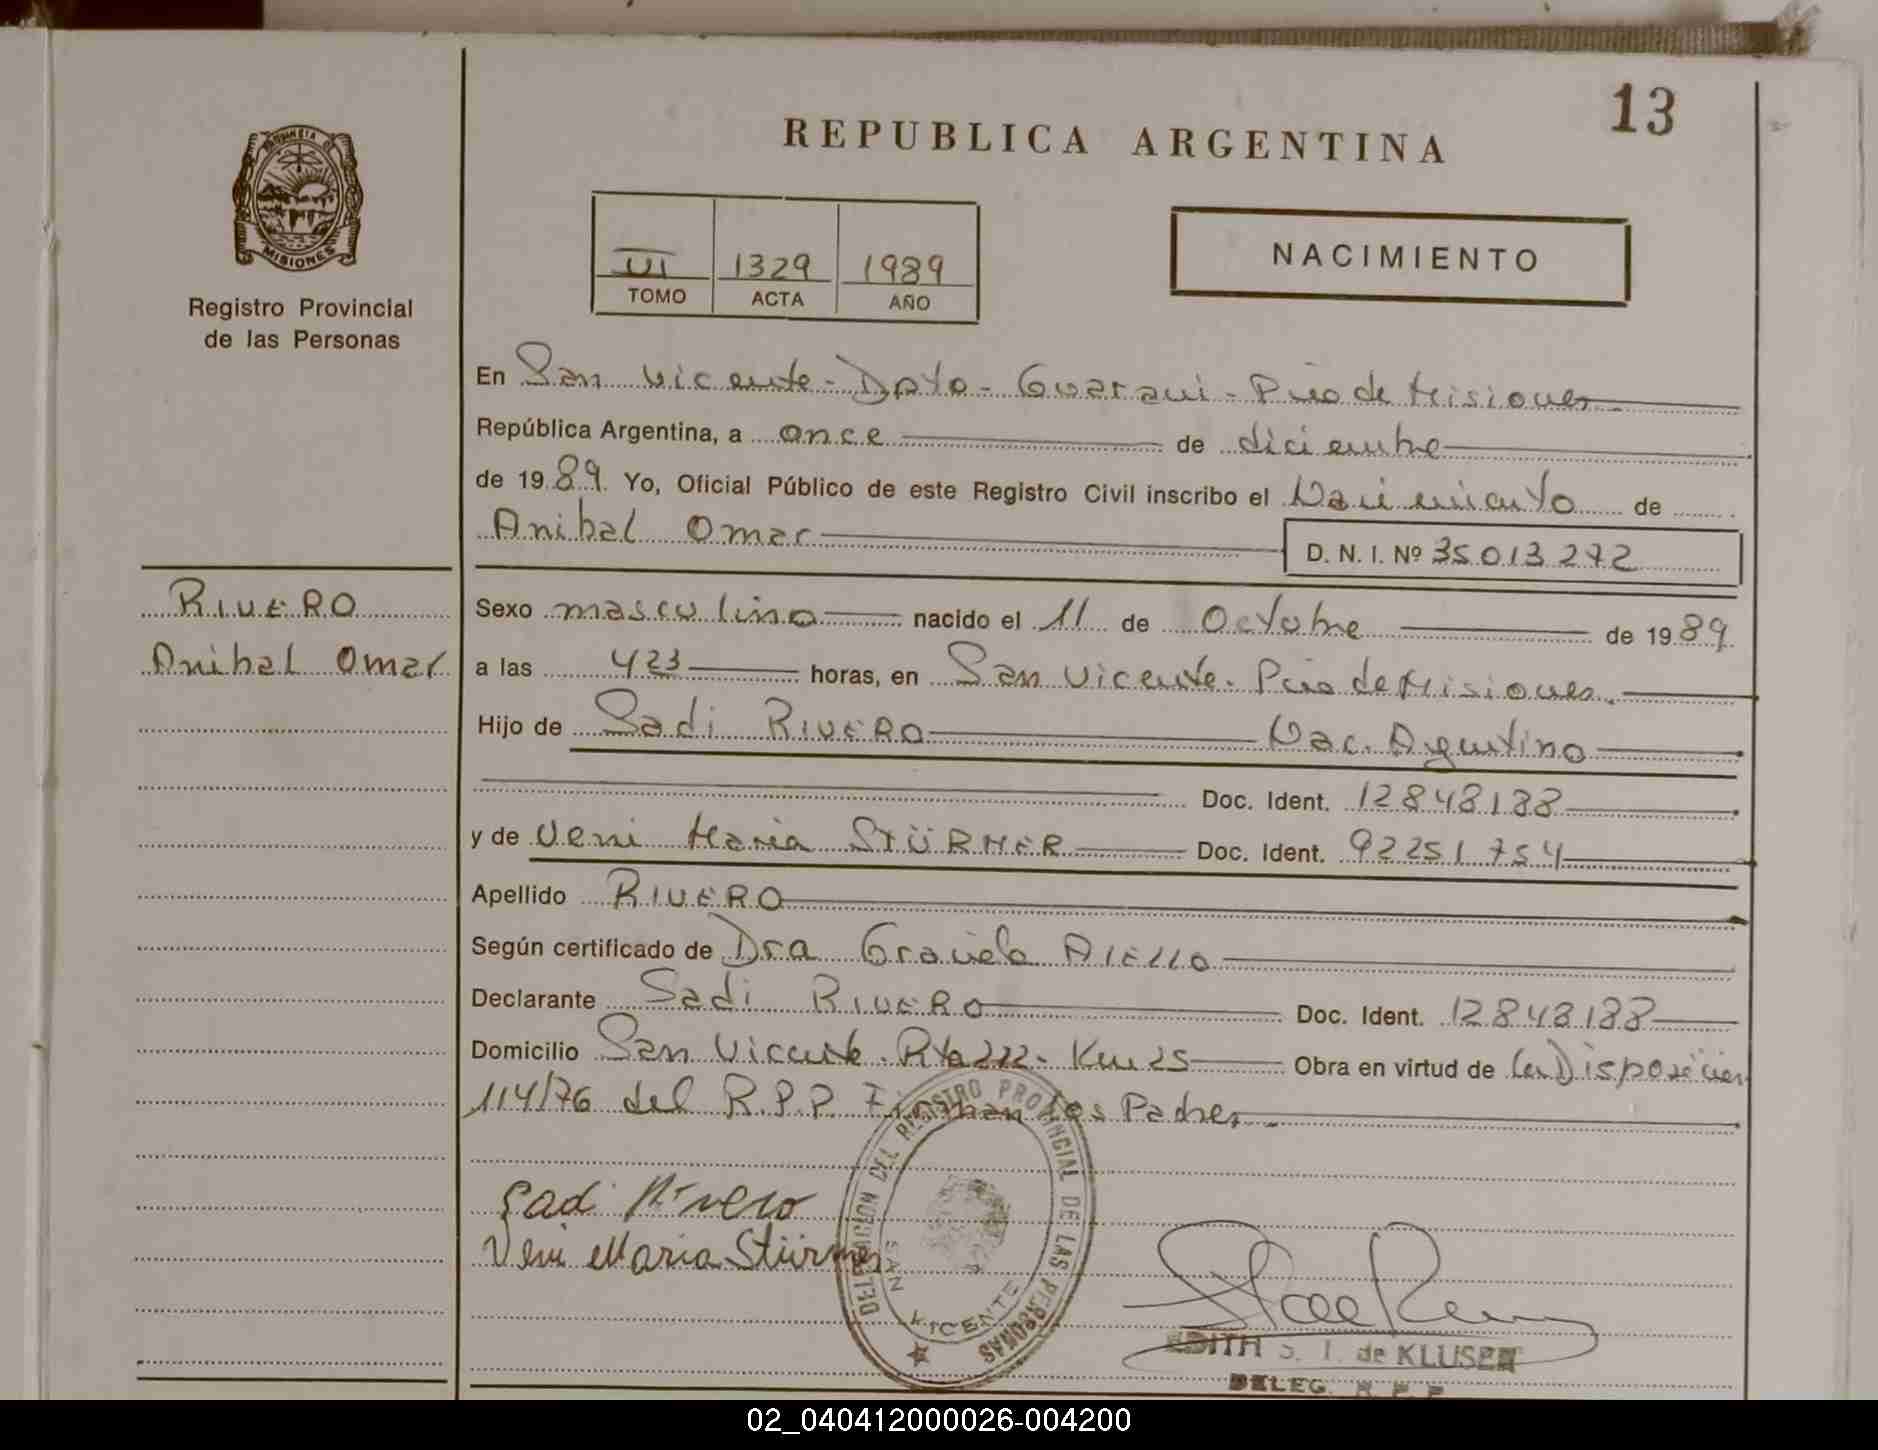 13
REPUBLICA ARGENTINA
PROVINCIA DE
MISIONES
Registro Provincial
de las Personas
VI 1329 1989
TOMO ACTA AÑO
NACIMIENTO
En San Vicente - Dpto - Guarani - Pcia de Misiones
República Argentina, a once de diciembre
de 1989. Yo, Oficial Público de este Registro Civil inscribo el Nacimiento de
Anibal Omar D. N. I. Nº 35013272
RIVERO
Anibal Omar
Sexo masculino nacido el 11 de Octubre de 1989
a las 423 horas, en San Vicente. Pcia de Misiones.
Hijo de Sadi RIVERO Nac. Argentino
Doc. Ident. 12848188
y de Veni Maria STÜRMER Doc. Ident. 92251754
Apellido RIVERO
Según certificado de Dra Graciela AIELLO
Declarante Sadi RIVERO Doc. Ident. 12848188
Domicilio San Vicente. Rta 222 - Km 25 Obra en virtud de la Disposición
114/76 del R.P.P. Firman los Padres.
Sadi Rivero
Veni Maria Stürmer
DELEGACION DEL REGISTRO PROVINCIAL DE LAS PERSONAS
SAN VICENTE
EDITH S. I. de KLUSEN
DELEG. R. P. P.
02_040412000026-004200